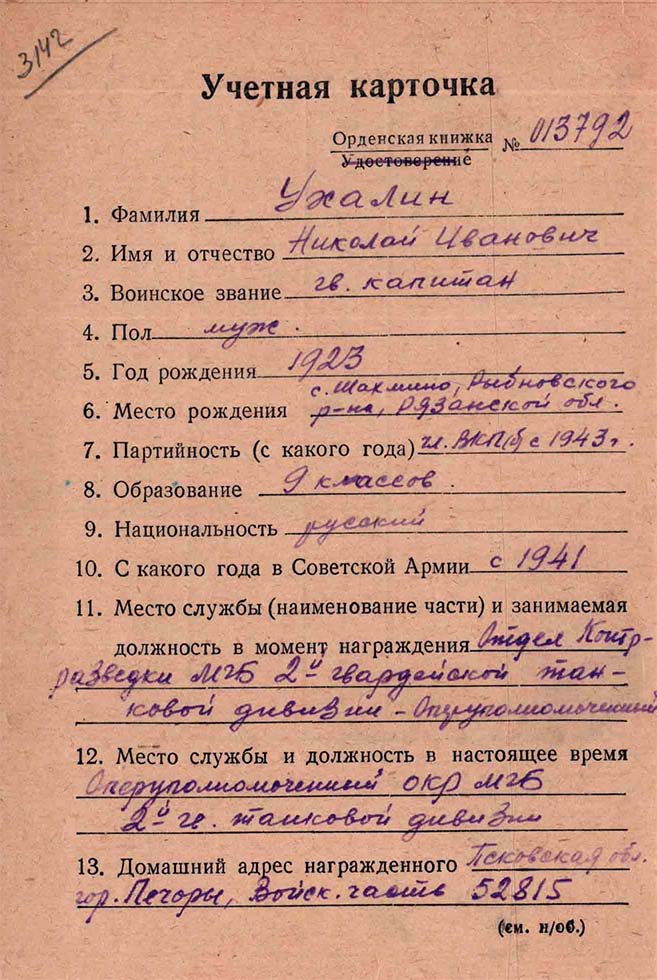 3142
Учетная карточка
Орденская книжка № 013792
Удостоверение
1. Фамилия Ухалин
2. Имя и отчество Николай Иванович
3. Воинское звание гв. капитан
4. Пол муж.
5. Год рождения 1923
с. Шахмино, Рыбновского
6. Место рождения р-на, Рязанской обл.
7. Партийность (с какого года) чл. ВКП(б) с 1943 г.
8. Образование 9 классов.
9. Национальность русский
10. С какого года в Советской Армии с 1941
11. Место службы (наименование части) и занимаемая
должность в момент награждения Отдел Контр-
разведки МГБ 2й гвардейской тан-
ковой дивизии - Оперуполномоченный
12. Место службы и должность в настоящее время
Оперуполномоченный ОКР МГБ
2й гв. танковой дивизии
13. Домашний адрес награжденного Псковская обл.
гор. Печоры, Войск. часть 52815
(см. н/об.)